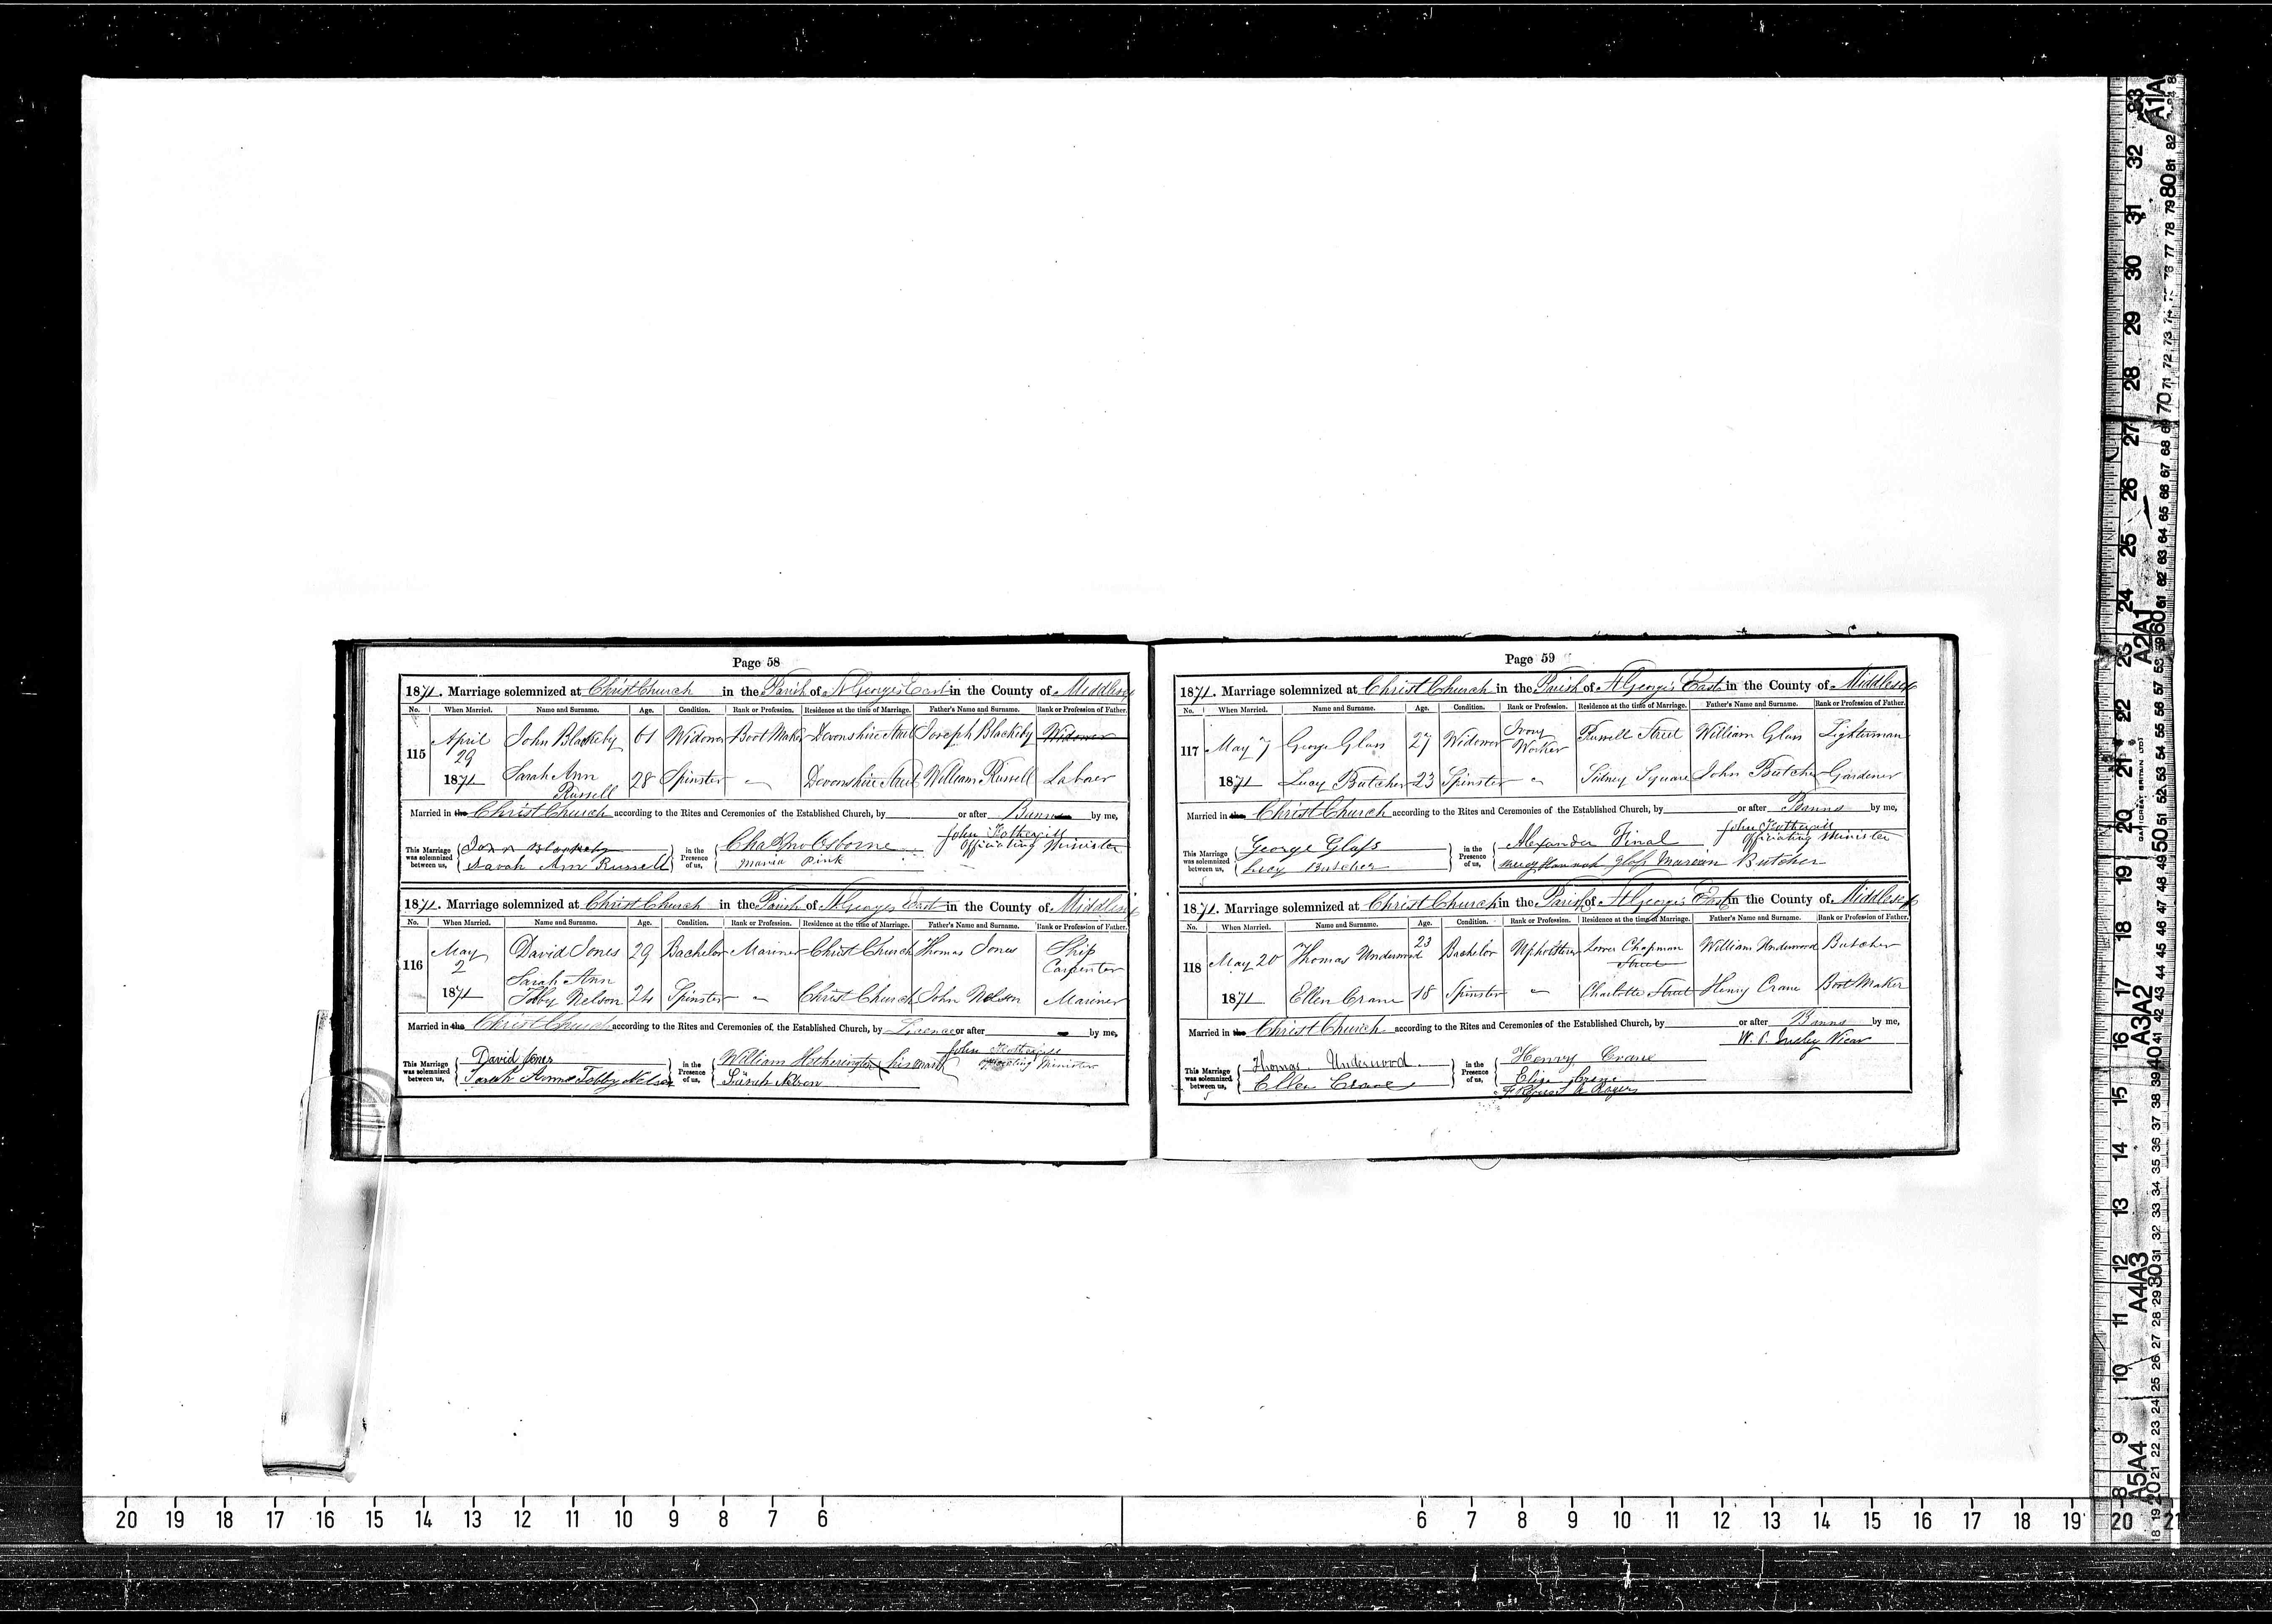 Page 58
1871. Marriage solemnized at Christ Church in the Parish of St Georges East in the County of Middlesex
No. When Married. Name and Surname. Age. Condition. Rank or Profession. Residence at the time of Marriage. Father's Name and Surname. Rank or Profession of Father.
115 April 29 John Blackeby 61 Widower Boot Maker Devonshire Street Joseph Blackeby Widower
1871 Sarah Ann Russell 28 Spinster " Devonshire Street William Russell Labaer
Married in the Christ Church according to the Rites and Ceremonies of the Established Church, by or after Banns by me,
John Fothergill
Officiating Minister
This Marriage was solemnized between us, John Blackeby
Sarah Ann Russell
in the Presence of us, Osborne
Maria Pink
1871. Marriage solemnized at Christ Church in the Parish of St Georges East in the County of Middlesex
No. When Married. Name and Surname. Age. Condition. Rank or Profession. Residence at the time of Marriage. Father's Name and Surname. Rank or Profession of Father.
116 May 2 David Jones 29 Bachelor Mariner Christ Church Thomas Jones Ship Carpenter
1871 Sarah Ann Tobby Nelson 24 Spinster " Christ Church John Nelson Mariner
Married in the Christ Church according to the Rites and Ceremonies of the Established Church, by Licence or after by me,
John Fothergill
Officiating Minister
This Marriage was solemnized between us, David Jones
Sarah Anne Tobby Nelson
in the Presence of us, William Hetherington his mark
Sarah Nelson
Page 59
1871. Marriage solemnized at Christ Church in the Parish of St George's East in the County of Middlesex
No. When Married. Name and Surname. Age. Condition. Rank or Profession. Residence at the time of Marriage. Father's Name and Surname. Rank or Profession of Father.
117 May 7 George Glass 27 Widower Ivory Worker Russell Street William Glass Lighterman
1871 Lucy Butcher 23 Spinster " Sidney Square John Butcher Gardener
Married in the Christ Church according to the Rites and Ceremonies of the Established Church, by or after Banns by me,
John Fothergill
Officiating Minister
This Marriage was solemnized between us, George Glass
Lucy Butcher
in the Presence of us, Alexander Final
Hannah Glass Butcher
1871. Marriage solemnized at Christ Church in the Parish of St George's East in the County of Middlesex
No. When Married. Name and Surname. Age. Condition. Rank or Profession. Residence at the time of Marriage. Father's Name and Surname. Rank or Profession of Father.
118 May 20 Thomas Underwood 23 Bachelor Upholsterer Lower Chapman Street William Underwood Butcher
1871 Ellen Crane 18 Spinster " Charlotte Street Henry Crane Boot Maker
Married in the Christ Church according to the Rites and Ceremonies of the Established Church, by or after Banns by me,
W. P. Insley Vicar
This Marriage was solemnized between us, Thomas Underwood
Ellen Crane
in the Presence of us, Henry Crane
Eliza Crane
Rogers
20 19 18 17 16 15 14 13 12 11 10 9 8 7 6 6 7 8 9 10 11 12 13 14 15 16 17 18 19 20 21
A1A
A2A1
A3A2
A4A3
A5A4